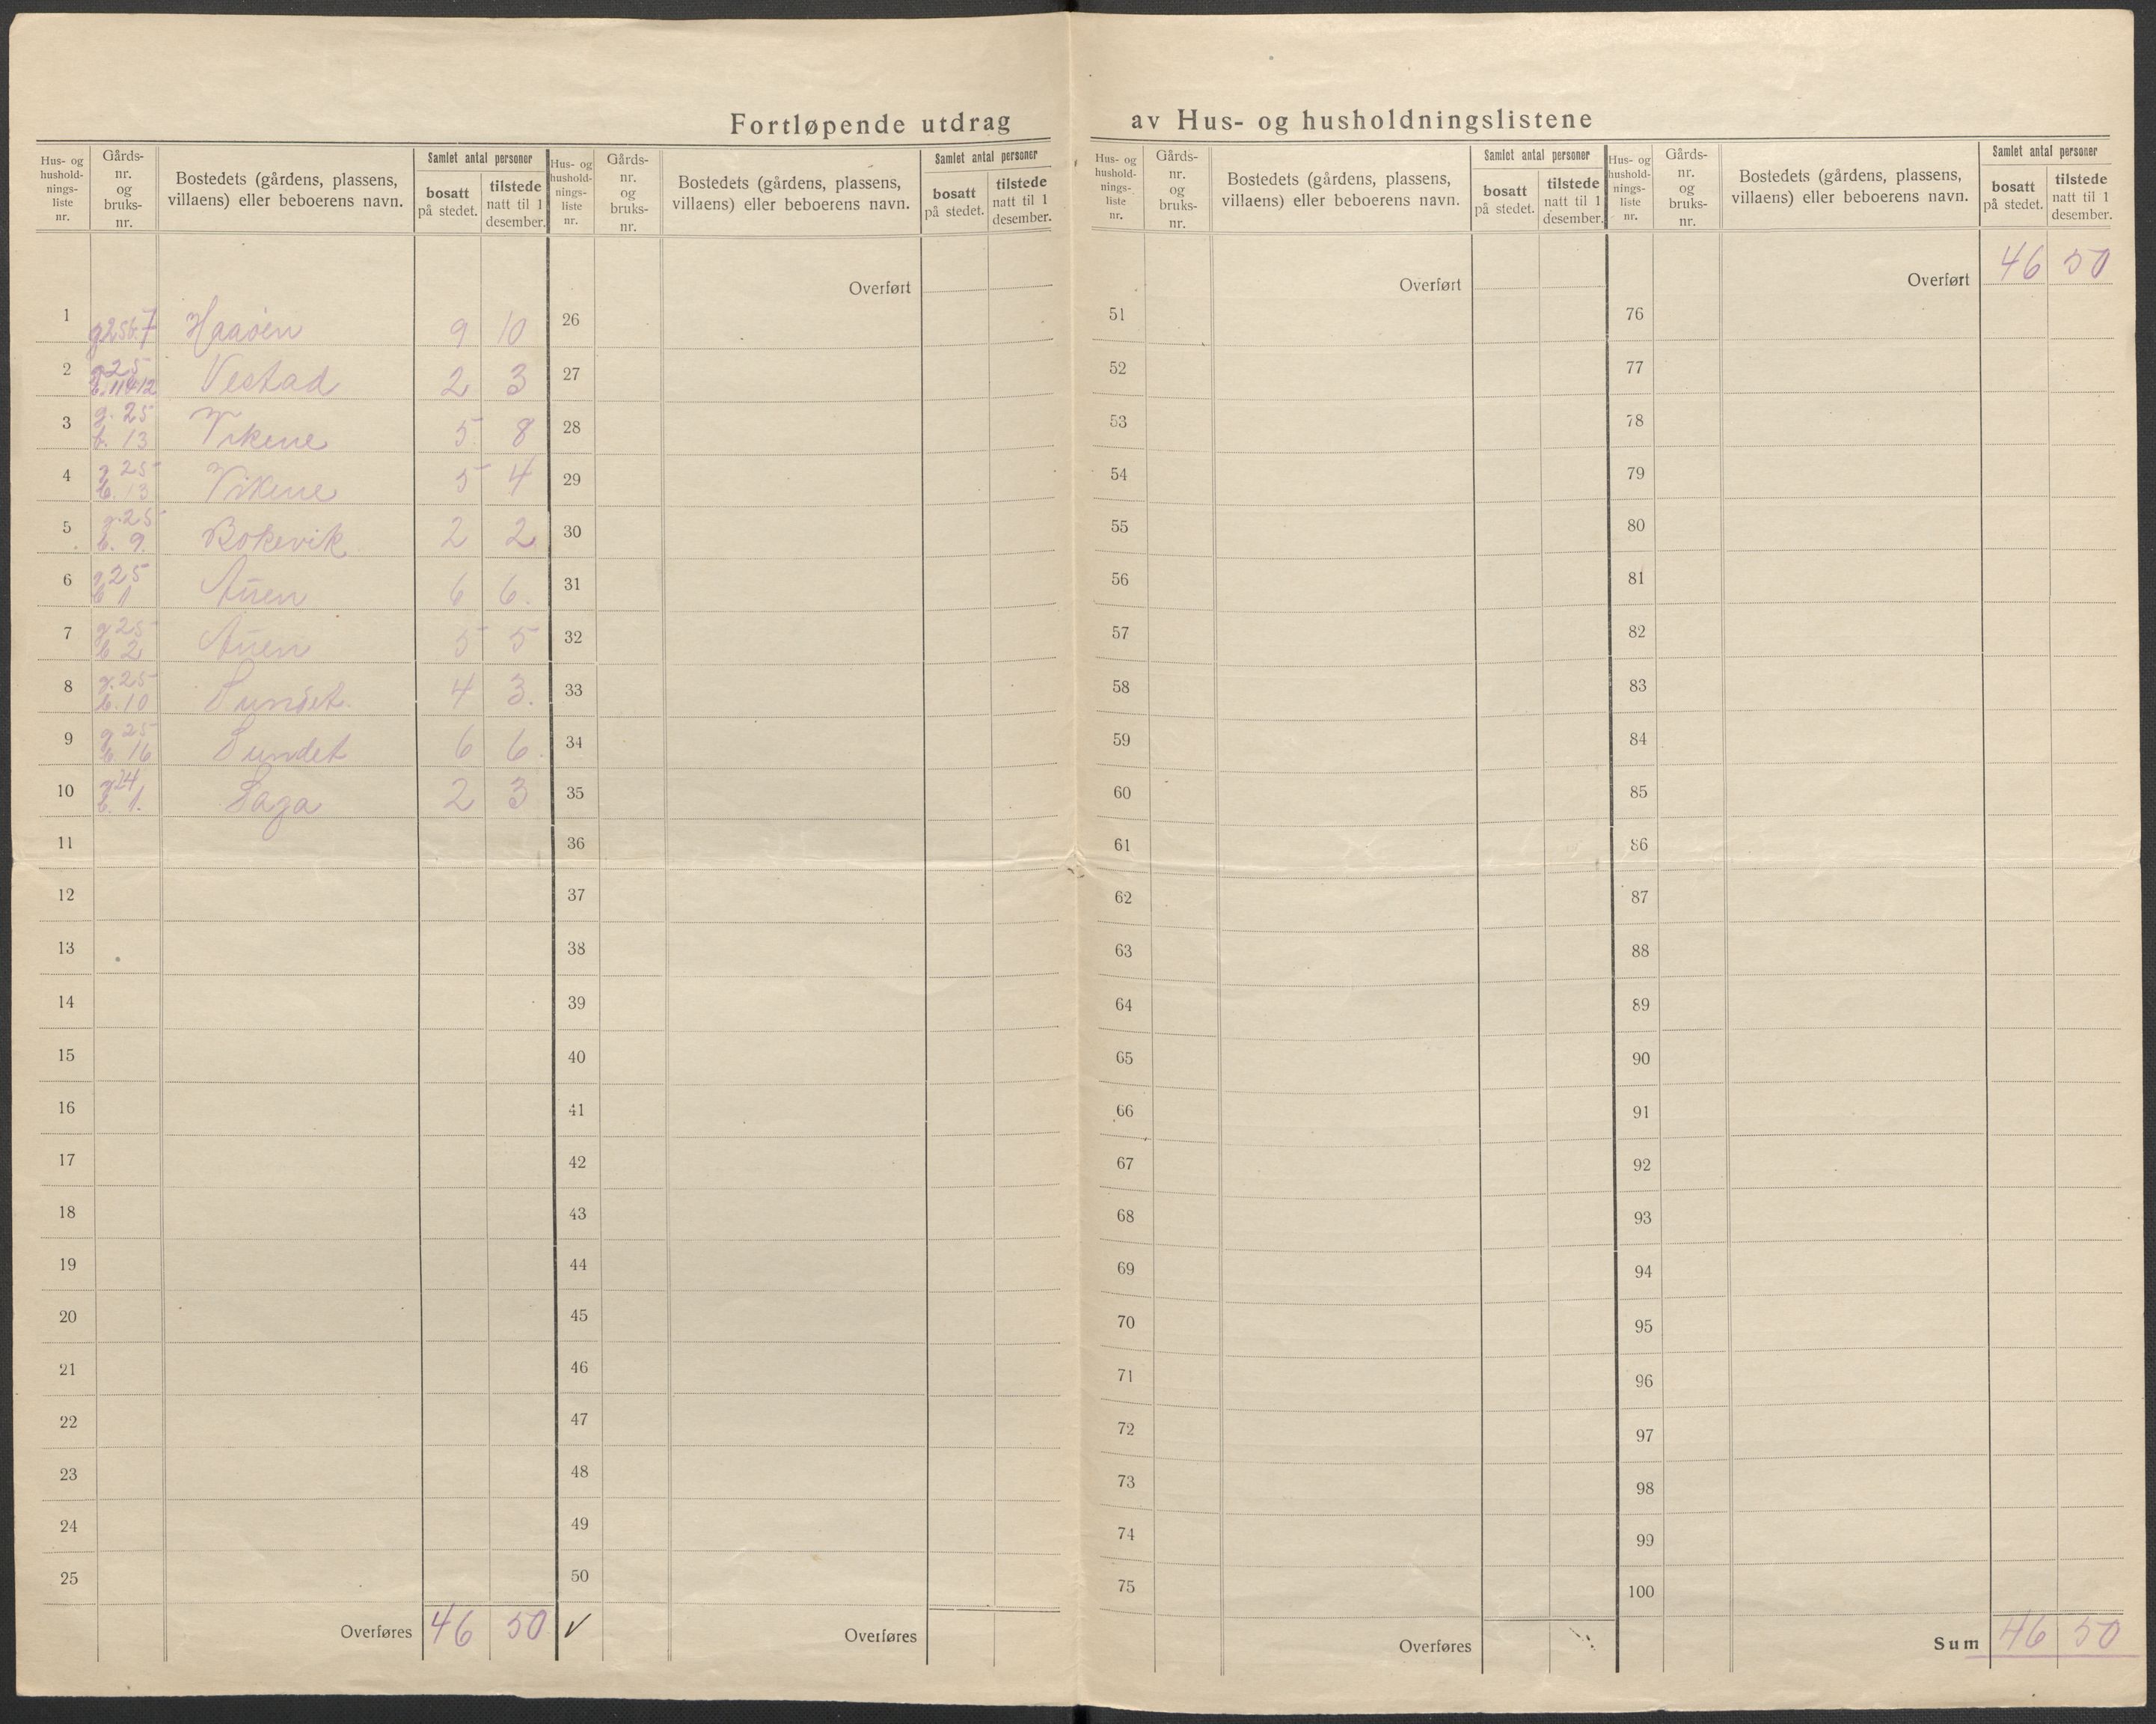 Fortløpende utdrag av Hus- og husholdningslistene
Hus- og hushold-nings-liste nr. Gårds-nr. og bruks-nr. Bostedets (gårdens, plassens, villaens) eller beboerens navn. Samlet antal personer bosatt på stedet. tilstede natt til 1 desember.
1 g 25 b. 7 Haaøen 9 10
2 g 25 b. 11 & 12 Vestad 2 3
3 g. 25 b. 13 Vikene 5 8
4 g. 25 b. 13 Vikene 5 4
5 g. 25 b. 9. Bokevik 2 2
6 g 25 b 1 Auen 6 6.
7 g 25 b 2 Auen 5 5
8 g. 25 b. 10 Sundet 4 3.
9 g 25 b. 16 Sundet 6 6.
10 g 24 b. 1. Saga 2 3
11
12
13
14
15
16
17
18
19
20
21
22
23
24
25
Overføres 46 50 ✓
Hus- og hushold-nings-liste nr. Gårds-nr. og bruks-nr. Bostedets (gårdens, plassens, villaens) eller beboerens navn. Samlet antal personer bosatt på stedet. tilstede natt til 1 desember.
Overført
26
27
28
29
30
31
32
33
34
35
36
37
38
39
40
41
42
43
44
45
46
47
48
49
50
Overføres
Hus- og hushold-nings-liste nr. Gårds-nr. og bruks-nr. Bostedets (gårdens, plassens, villaens) eller beboerens navn. Samlet antal personer bosatt på stedet. tilstede natt til 1 desember.
Overført
51
52
53
54
55
56
57
58
59
60
61
62
63
64
65
66
67
68
69
70
71
72
73
74
75
Overføres
Hus- og hushold-nings-liste nr. Gårds-nr. og bruks-nr. Bostedets (gårdens, plassens, villaens) eller beboerens navn. Samlet antal personer bosatt på stedet. tilstede natt til 1 desember.
Overført 46 50
76
77
78
79
80
81
82
83
84
85
86
87
88
89
90
91
92
93
94
95
96
97
98
99
100
Sum 46 50